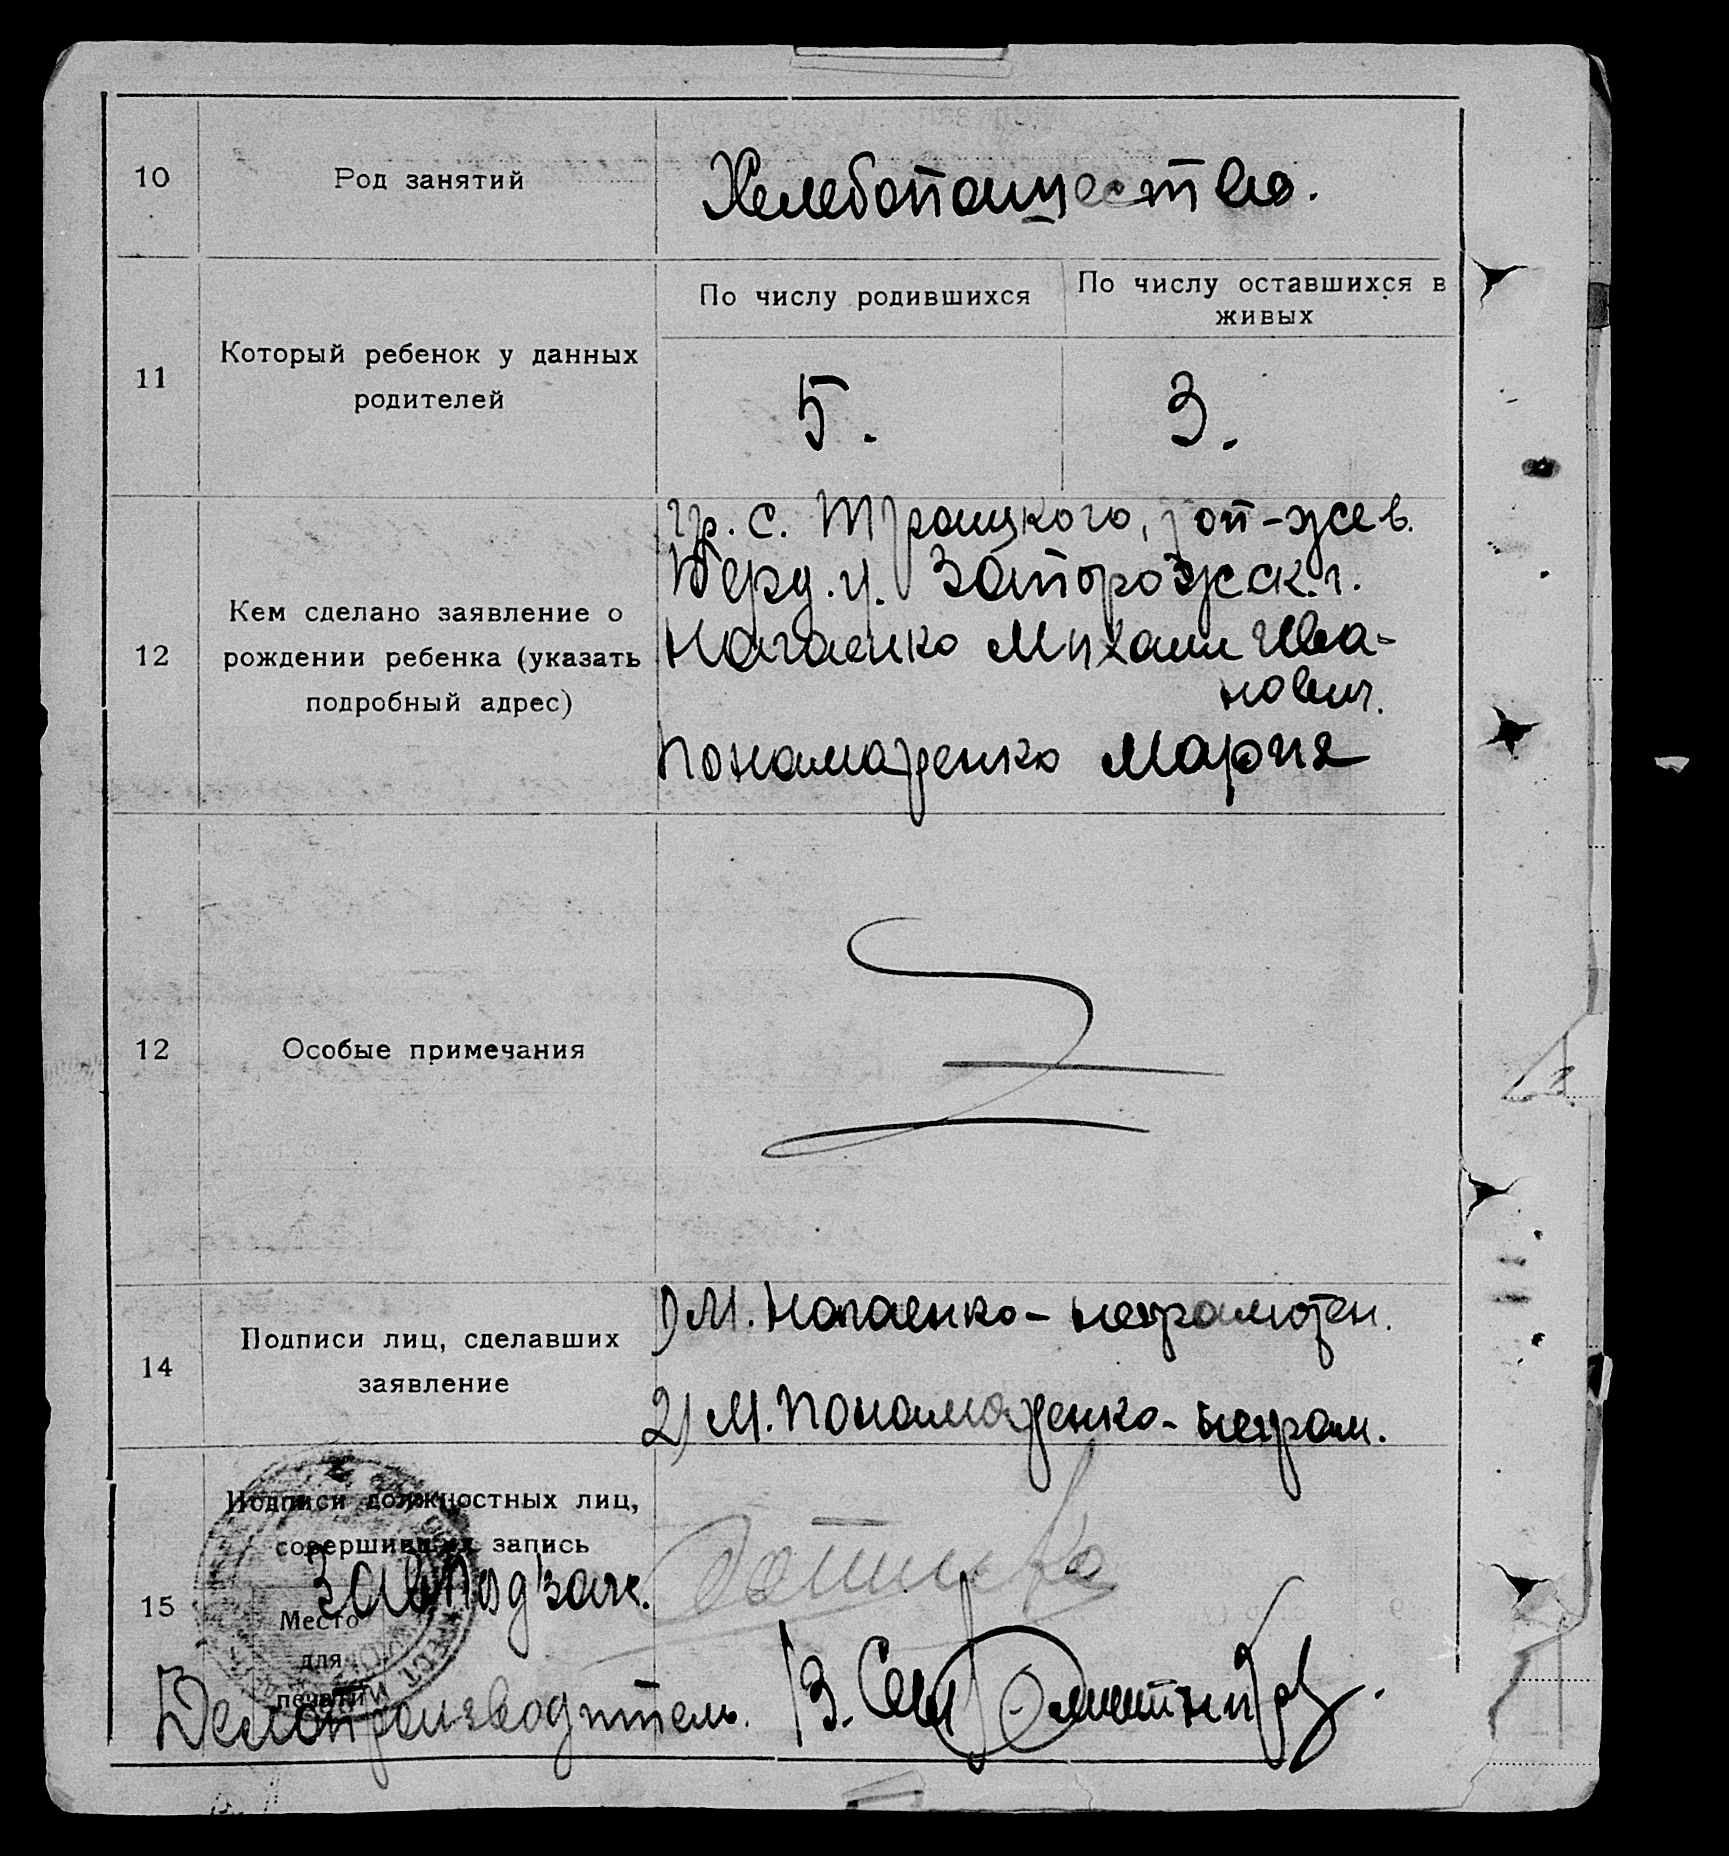 10
Род занятий
Хлебопашество.
11
Который ребенок у данных
родителей
По числу родившихся
По числу оставшихся в
живых
5.
3.
12
Кем сделано заявление о
рождении ребенка (указать
подробный адрес)
гр. с. Троицкого,
Берд. у. Запорожск. г.
Нагаенко Михаил Ива-
нович.
Пономаренко Мария
12
Особые примечания
14
Подписи лиц, сделавших
заявление
1) М. Нагаенко - неграмотен.
2) М. Пономаренко - неграм.
15
Подписи должностных лиц,
совершивших запись
Завподзаг.
Место
для
печати
Делопроизводитель.